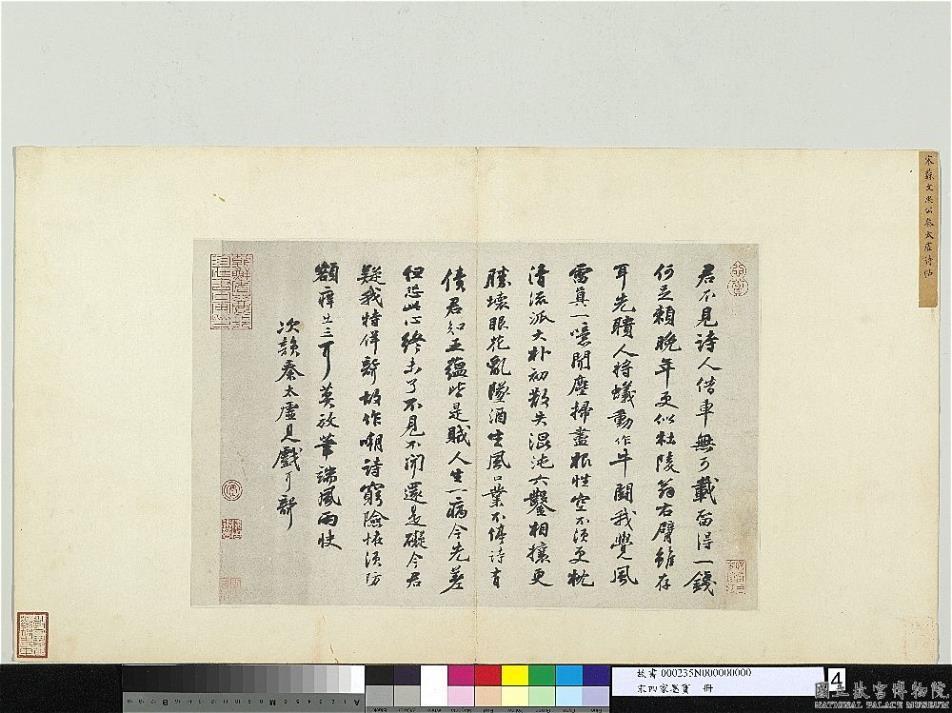 宋蘇文忠公秦太虛詩帖
君不見詩人借車無可載留得一錢
何足賴晚年更似杜陵翁右臂雖存
耳先聵人將蟻動作牛鬪我覺風
雷真一噫聞塵掃盡根性空不須更枕
清流派大朴初散失混沌六鑿相攘更
勝壞眼花亂墜酒生風口業不停詩有
債君知五蘊皆是賊人生一病今先差
但恐此心終未了不見不聞還是礙今君
疑我特佯聾故作嘲詩窮險怪須防
額癢出三耳莫放筆端風雨快
次韻秦太虛見戲耳聾
故書 000235N000000000
宋四家墨寶 冊
14
國立故宮博物院
NATIONAL PALACE MUSEUM